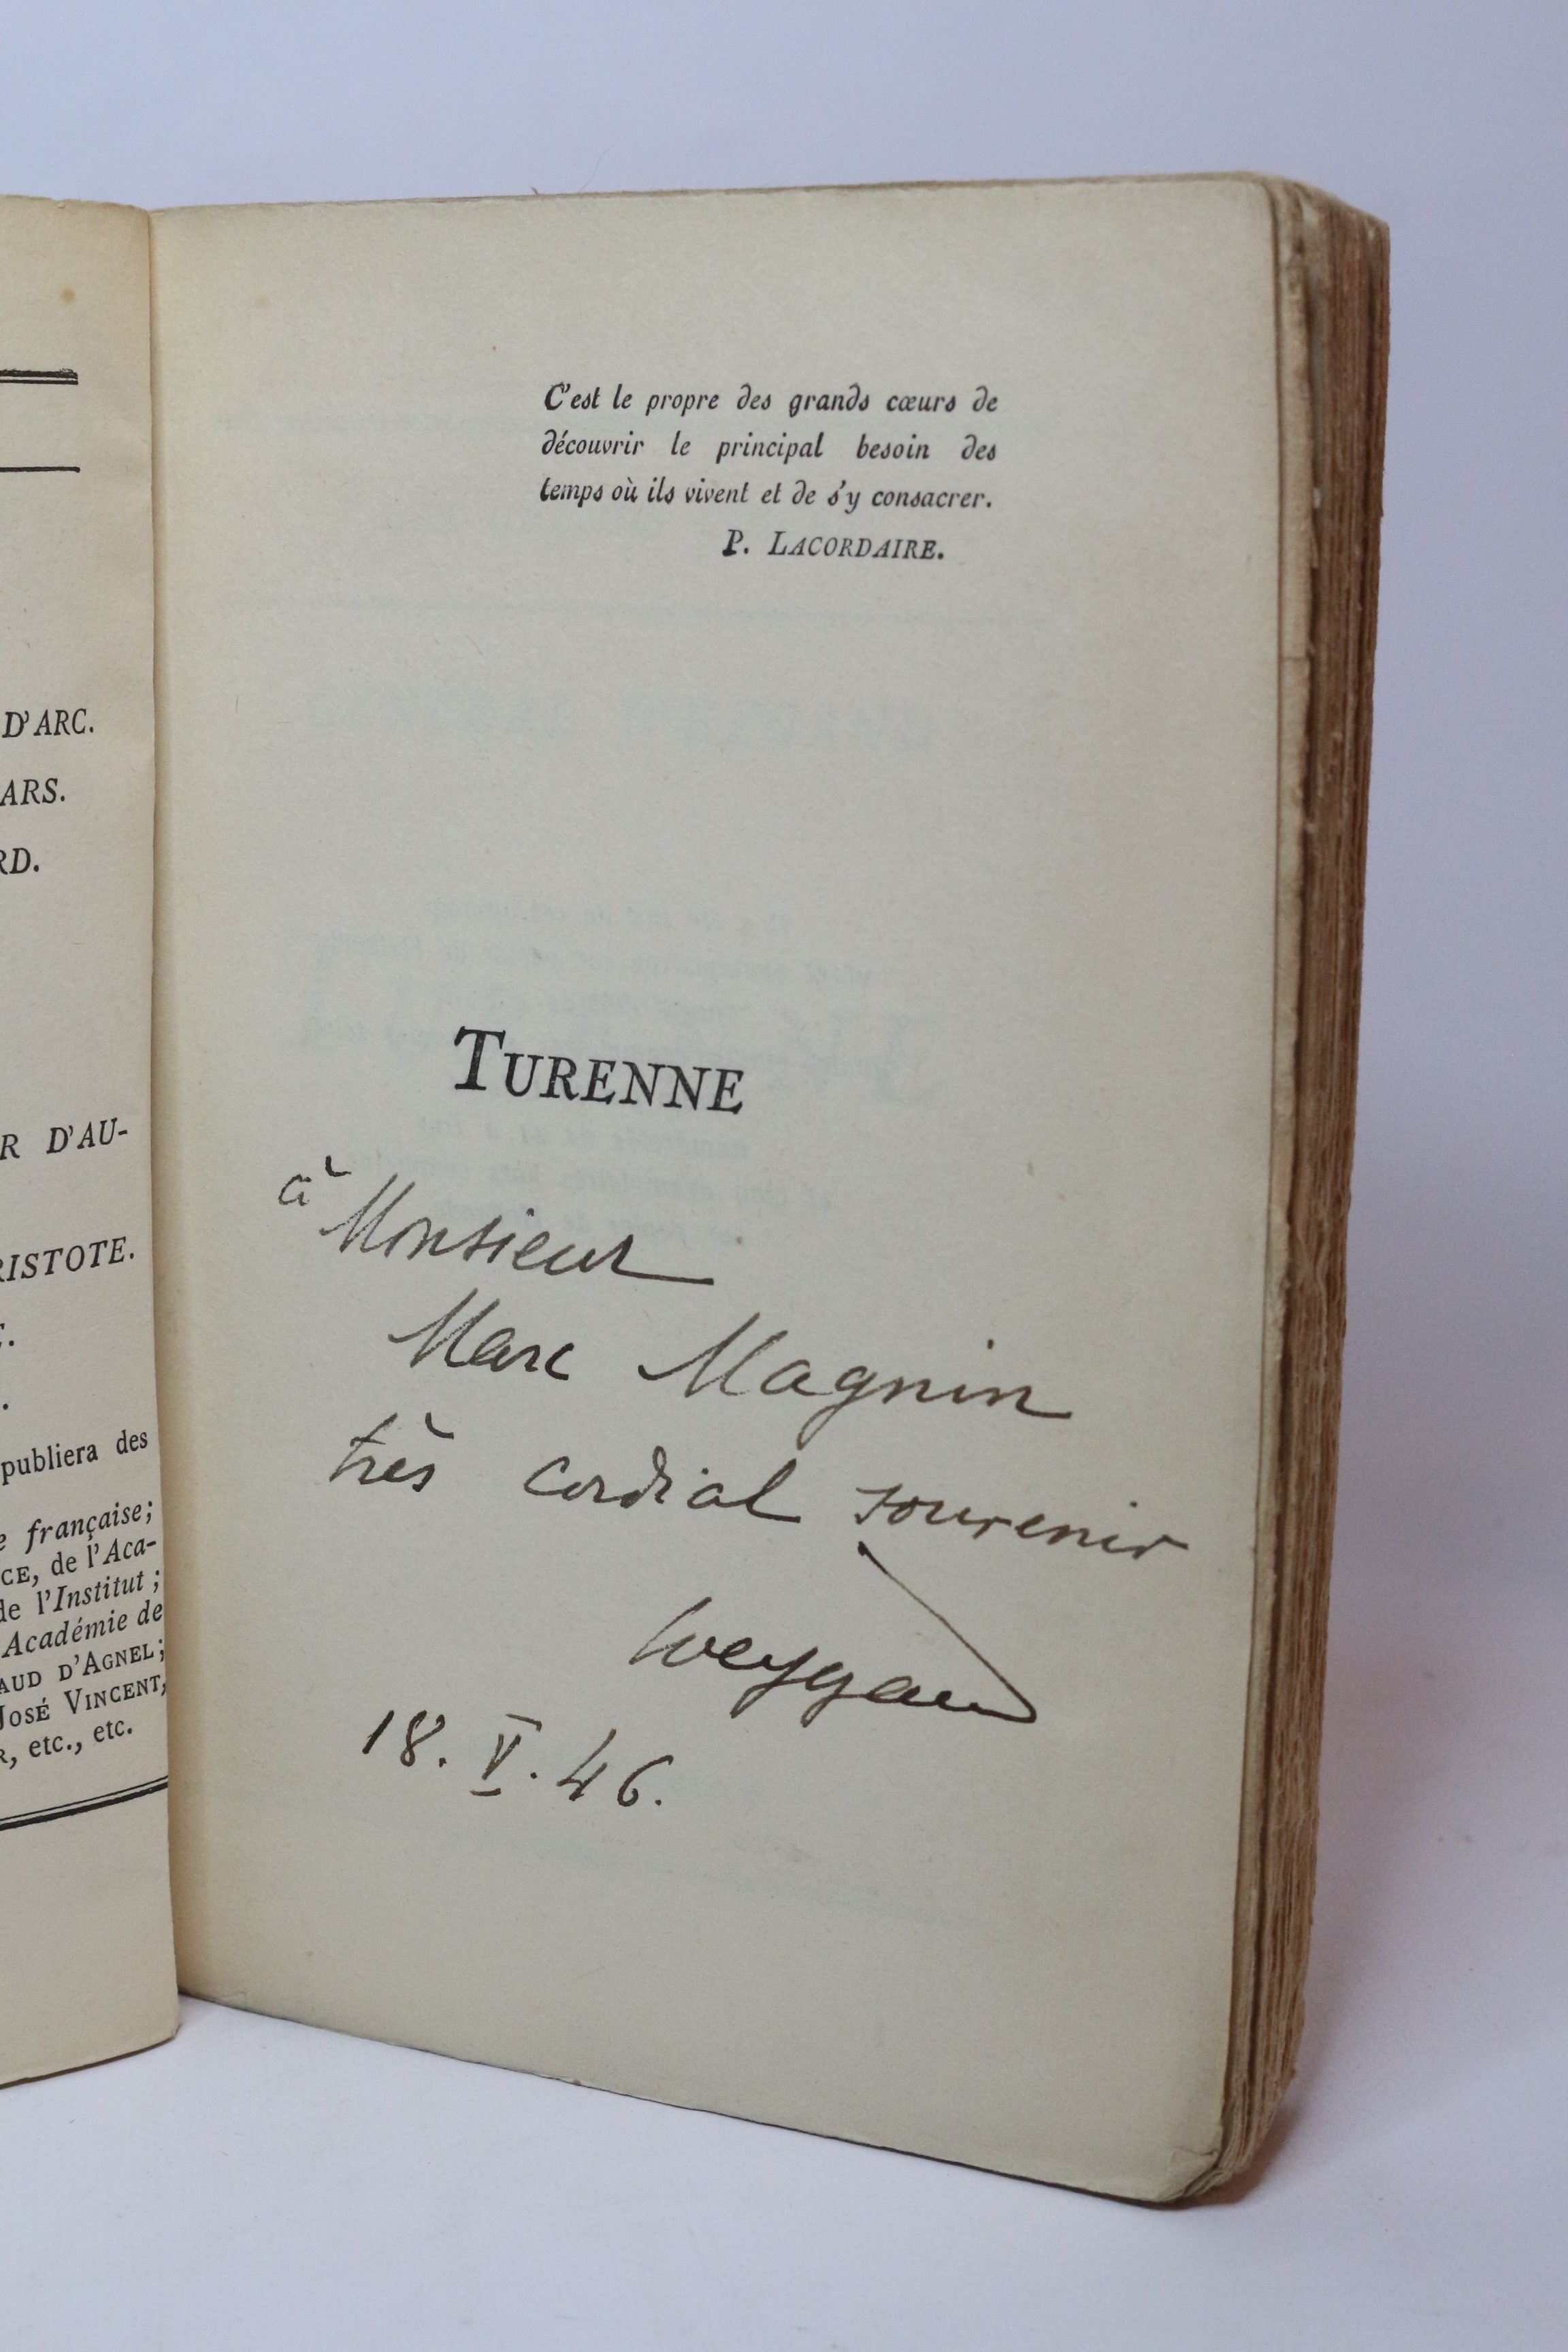 D'ARC.
ARS.
RD.
R D'AU-
RISTOTE.
publiera des
e française;
CE, de l'Aca-
de l'Institut;
Académie de
AUD D'AGNEL;
JOSÉ VINCENT,
R, etc., etc.
C'est le propre des grands cœurs de
découvrir le principal besoin des
temps où ils vivent et de s'y consacrer.
P. LACORDAIRE.
TURENNE
à Monsieur
Marc Magnin
très cordial souvenir
Weygand
18. V. 46.